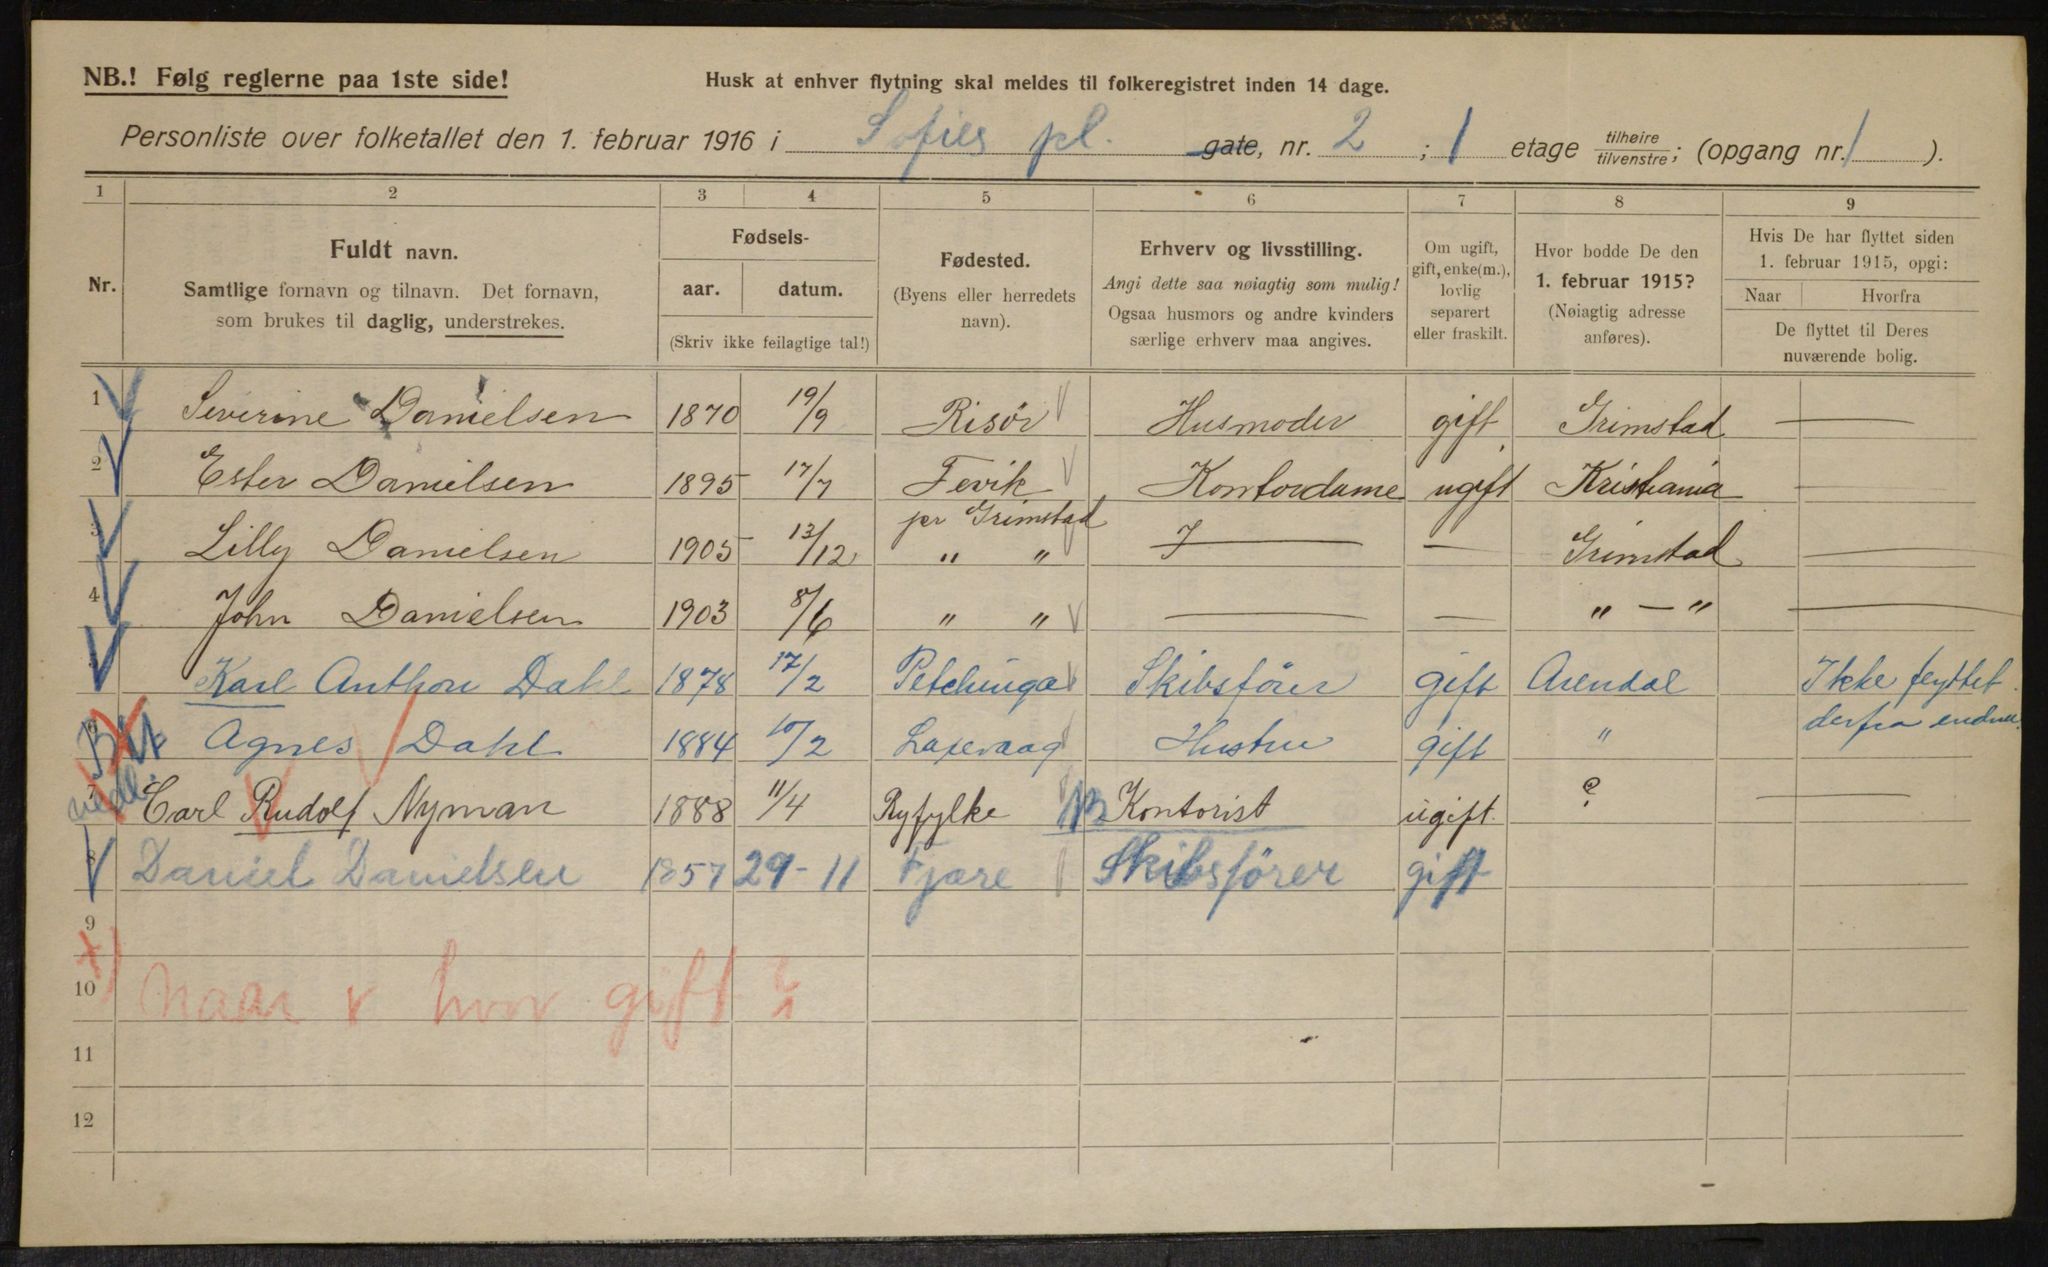 NB.! Følg reglerne paa 1ste side!
Husk at enhver flytning skal meldes til folkeregistret inden 14 dage.
Personliste over folketallet den 1. februar 1916 i Sofies pl. gate, nr. 2 ; 1 etage tilhøire/tilvenstre; (opgang nr. 1 ).
1 2 3 4 5 6 7 8 9
Nr.
Fuldt navn.
Samtlige fornavn og tilnavn. Det fornavn,
som brukes til daglig, understrekes.
Fødsels-
aar. datum.
(Skriv ikke feilagtige tal!)
Fødested.
(Byens eller herredets
navn).
Erhverv og livsstilling.
Angi dette saa nøiagtig som mulig!
Ogsaa husmors og andre kvinders
særlige erhverv maa angives.
Om ugift,
gift, enke(m.),
lovlig
separert
eller fraskilt.
Hvor bodde De den
1. februar 1915?
(Nøiagtig adresse
anføres).
Hvis De har flyttet siden
1. februar 1915, opgi:
Naar Hvorfra
De flyttet til Deres
nuværende bolig.
1 Severine Danielsen 1870 19/9 Risör Husmoder gift Grimstad —
2 Ester Danielsen 1895 17/7 Fevik Kontordame ugift Kristiania —
pr Grimstad
3 Lilly Danielsen 1905 13/12 " " — — Grimstad —
4 John Danielsen 1903 8/6 " " — — " — " —
5 Karl Anthon Dahl 1878 17/2 Petchinga Skibsförer gift Arendal Ikke flyttet
derfra endnu.
6 Agnes Dahl 1884 10/2 Laxevaag Hustru gift "
7 Carl Rudolf Nyman 1888 11/4 Ryfylke Kontorist ugift ? —
8 Daniel Danielsen 1857 29-11 Fjære Skibsförer gift
9
10 Naar & hvor gift?
11
12